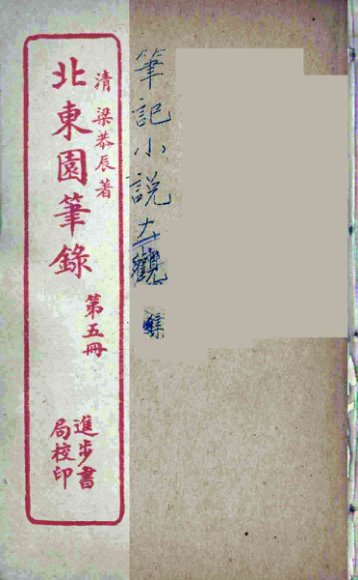 筆記小說大觀
清 梁恭辰著
北東園筆錄
第五冊
進步書
局校印